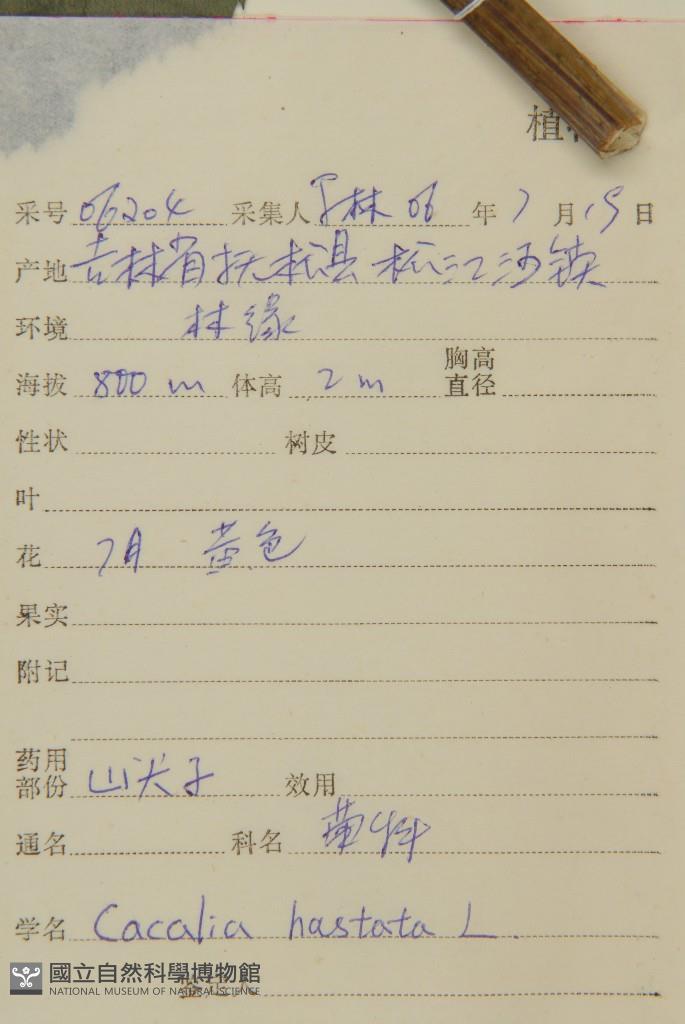 植
采号 06204 采集人 林 06 年 7 月 19 日
产地 吉林省抚松县 松江河镇
环境 林缘
海拔 800 m 体高 2 m 胸高直径
性状 树皮
叶
花 7月 黄色
果实
附记
药用部份 山尖子 效用
通名 科名 菊科
学名 Cacalia hastata L.
國立自然科學博物館
NATIONAL MUSEUM OF NATURAL SCIENCE